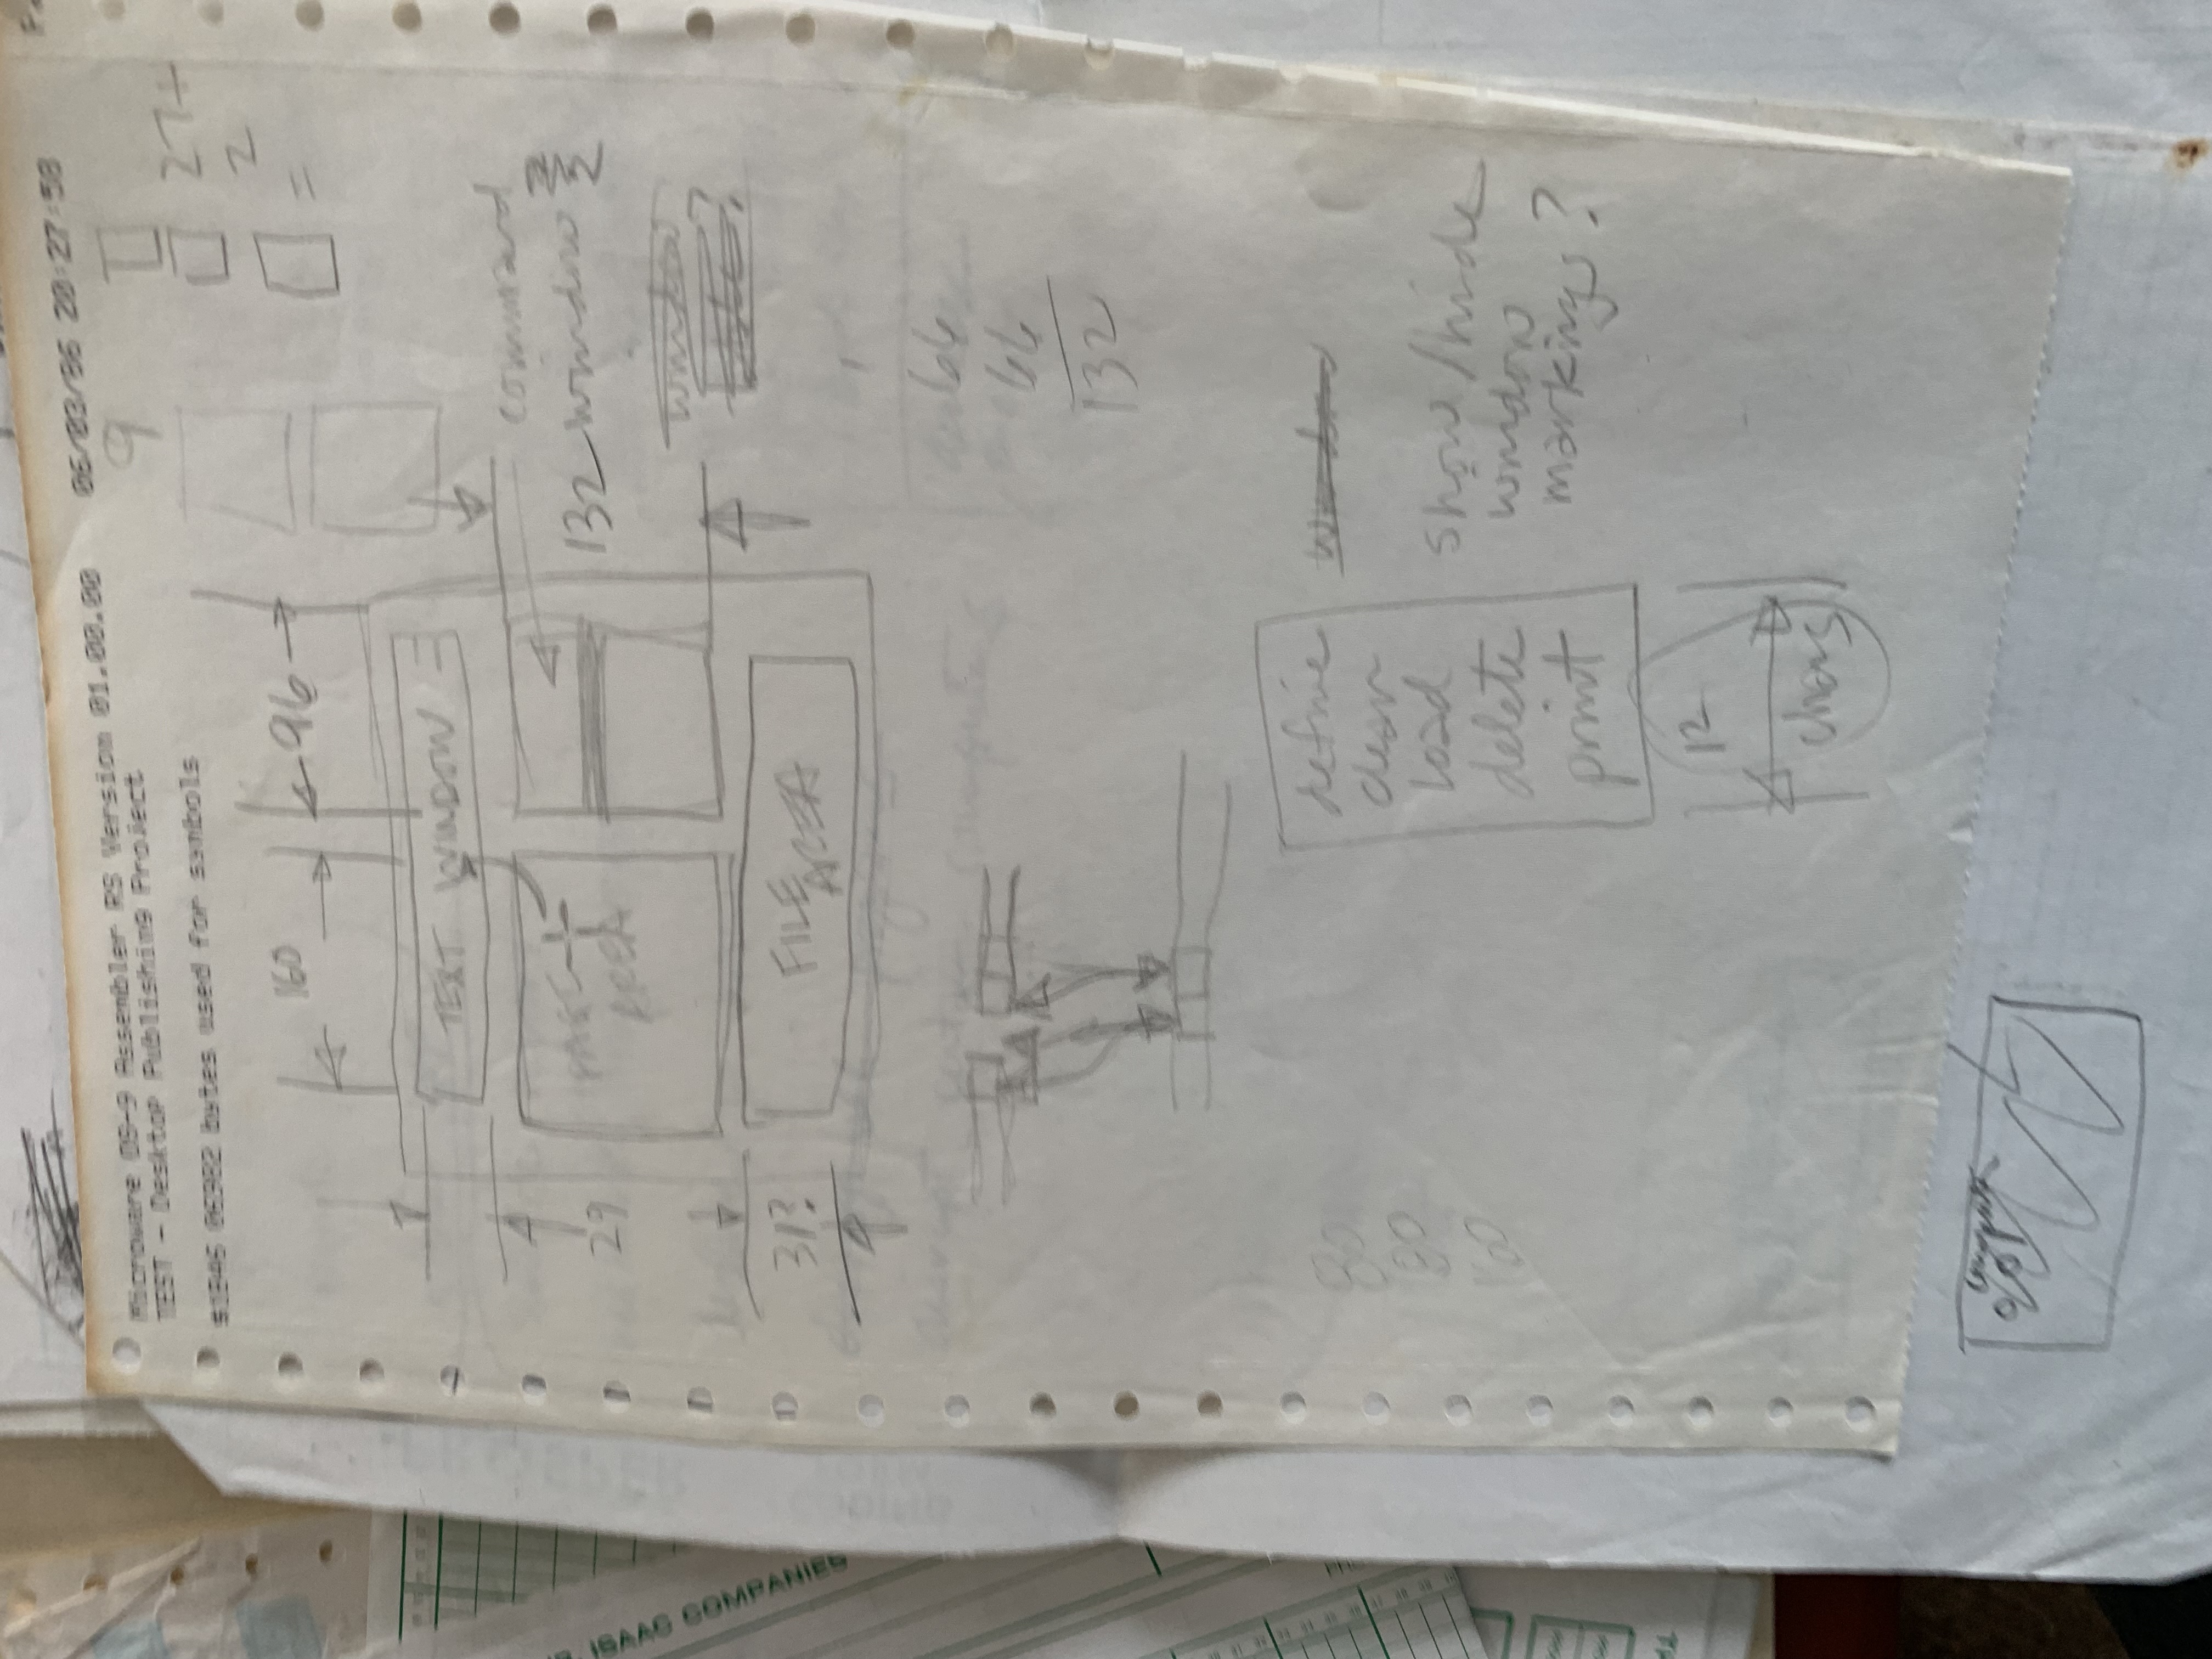 Microware OS-9 Assembler RS Version 01.00.00 06/03/86 20:27:58
TEST - Desktop Publishing Project
$1B46 06982 bytes used for symbols
9
27+
2
=
160
96
TEXT WINDOW
command
132 window
29
PAGE
AREA
window
?
31?
FILE
AREA
66
66
132
computers
define
clear
load
delete
print
window
show/hide
window
markings?
80
80
160
12
chars
ISAAC COMPANIES